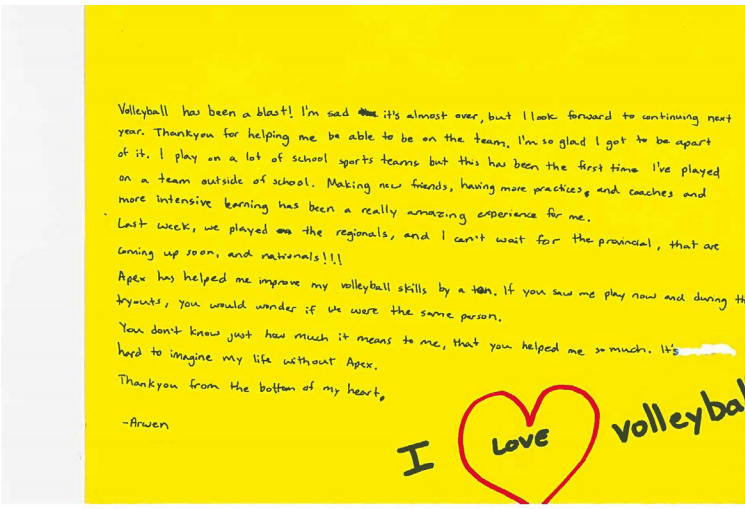 Volleyball has been a blast! I'm sad it's almost over, but I look forward to continuing next
year. Thankyou for helping me be able to be on the team. I'm so glad I got to be apart
of it. I play on a lot of school sports teams but this has been the first time I've played
on a team outside of school. Making new friends, having more practices, and coaches and
more intensive learning has been a really amazing experience for me.
Last week, we played the regionals, and I can't wait for the provincial, that are
coming up soon, and nationals!!!
Apex has helped me improve my volleyball skills by a ton. If you saw me play now and during th
tryouts, you would wonder if we were the same person.
You don't know just how much it means to me, that you helped me so much. It's
hard to imagine my life without Apex.
Thankyou from the bottom of my heart,
-Arwen
I LOVE volleybal